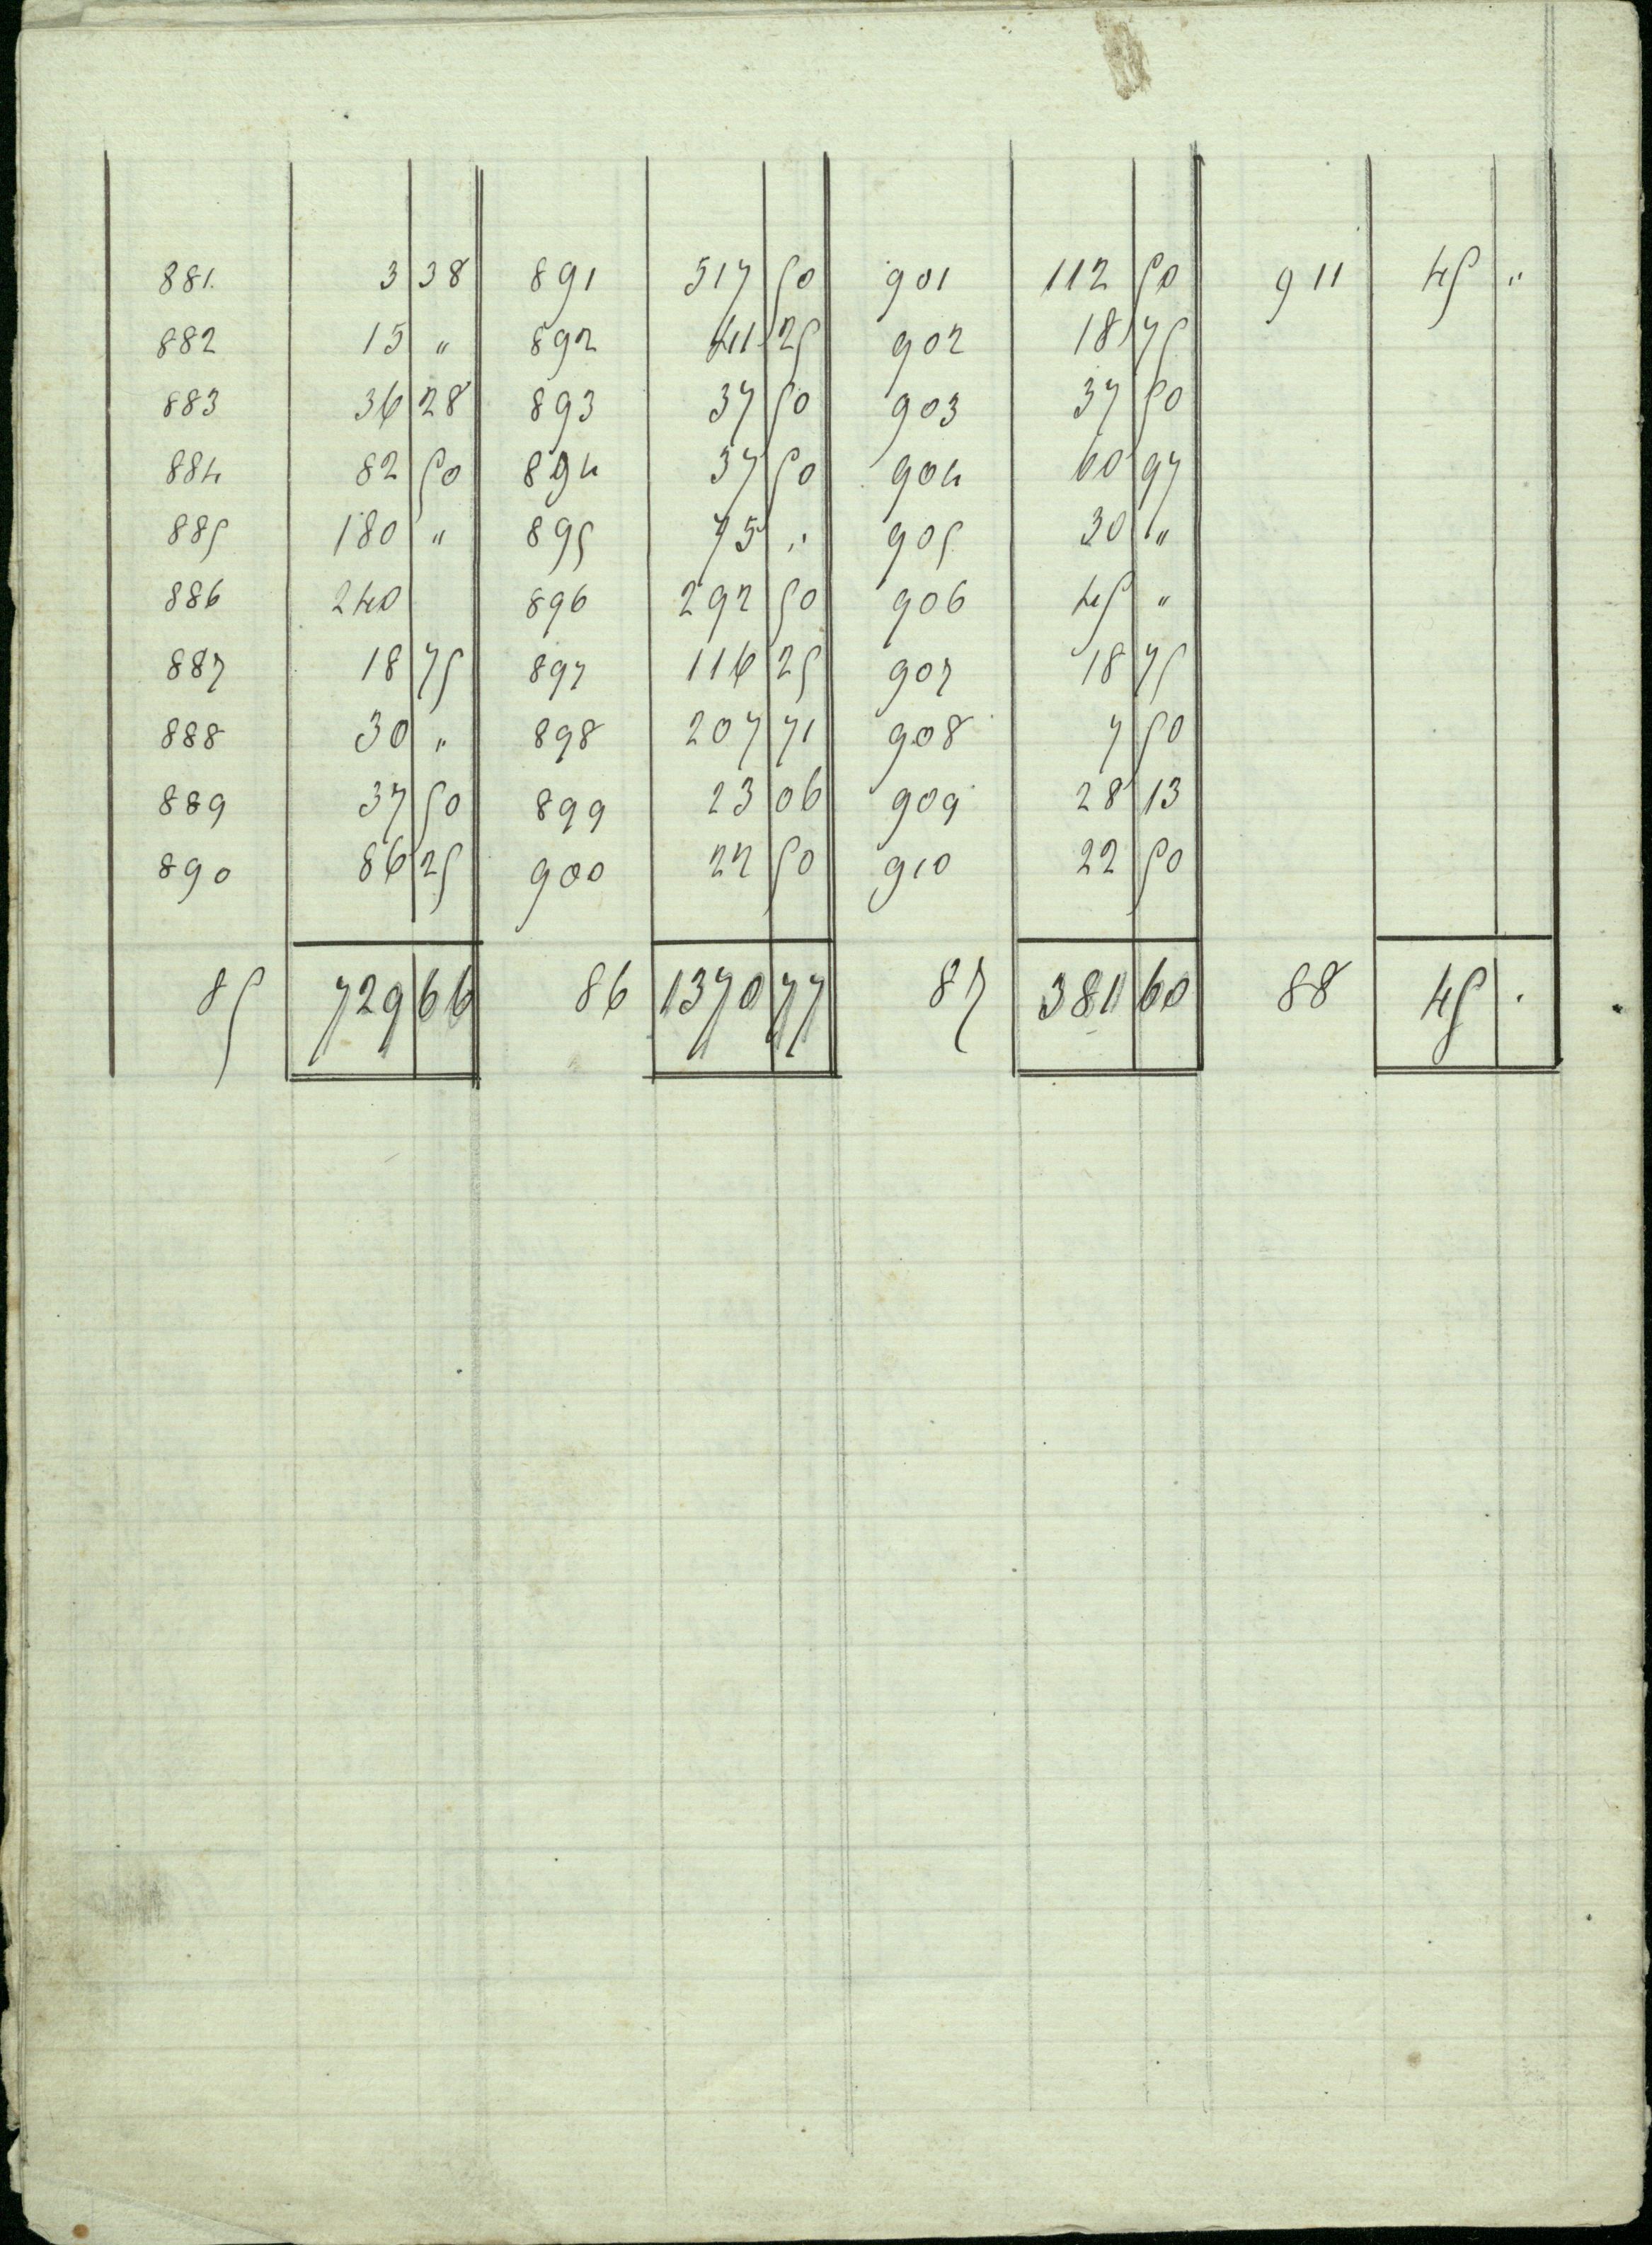 881. 3 38 891 517 50 901 112 50 911 45 "
882 15 " 892 41 25 902 18 75
883 36 28 893 37 50 903 37 50
884 82 50 894 37 50 904 60 97
885 180 " 895 75 " 905 30 "
886 240 896 292 50 906 45 "
887 18 75 897 116 25 907 18 75
888 30 " 898 207 71 908 7 50
889 37 50 899 23 06 909 28 13
890 86 25 900 22 50 910 22 50
85 729 66 86 1370 77 87 381 60 88 45 .